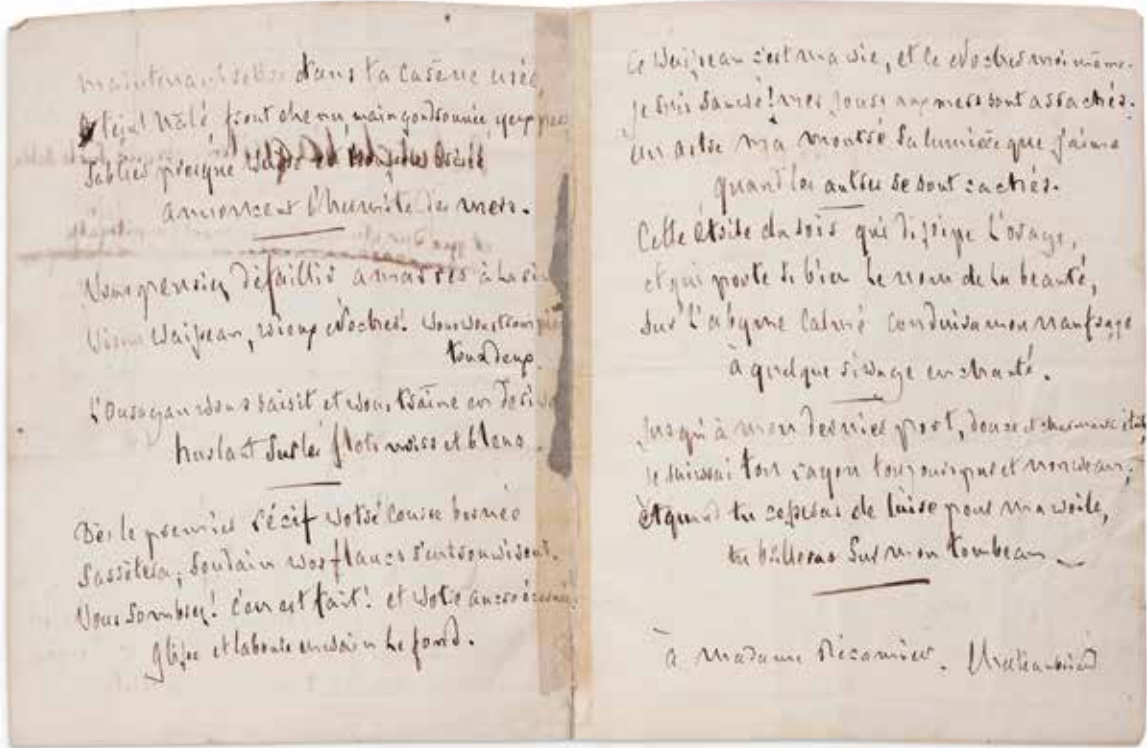 maintenant retiré dans ta carène usée,
teint hâlé front chenu main goudronnée yeux pers
Sablier presque
annoncent l'hermite des mers.
Vous pensiez défaillir amarrés à la
Vieux vaisseau, vieux nocher! Vous vous trompiez
tous deux.
L'Ouragan vous saisit et vous traîne en dérive
hurlant sur les flots noirs et bleus.
Dès le premier récif votre course bornée
s'arrêtera; soudain vos flancs s'entrouvriront.
Vous sombrez! c'en est fait! et votre ancre
glisse et laboure en vain le fond.
Ce vaisseau c'est ma vie, et ce nocher moi même.
je suis sauvé! mes jours aux mers sont arrachés.
un astre m'a montré sa lumière que j'aime
quand les autres se sont cachés.
Cette étoile du soir qui dissipe l'orage,
et qui porte si bien le nom de la beauté,
sur l'abyme calmé conduira mon naufrage
à quelque rivage enchanté.
Jusqu'à mon dernier port, douce et charmante
je suivrai ton rayon toujours pur et nouveau;
et quand tu cesseras de luire pour ma voile,
tu brilleras sur mon tombeau
à Madame Récamier. Chateaubriand